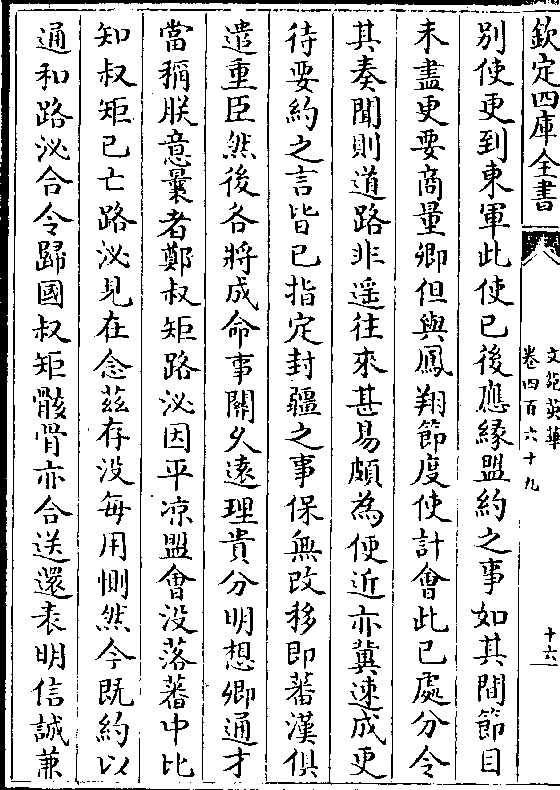 欽定四庫全書
文苑英華
卷四百六十九
十六
別使更到東軍此使已後應緣盟約之事如其間節目
未盡更要商量卿但與鳳翔節度使計會此已處分令
其奏聞則道路非遥往來甚易頗為便近亦冀速成更
待要約之言皆已指定封疆之事保無改移即蕃漢俱
遣重臣然後各將成命事關久遠理貴分明想卿通才
當稱朕意曩者鄭叔矩路泌因平凉盟會没落蕃中比
知叔矩已亡路泌見在念兹存没每用惻然今既約以
通和路泌合令歸國叔矩骸骨亦合送還表明信誠兼